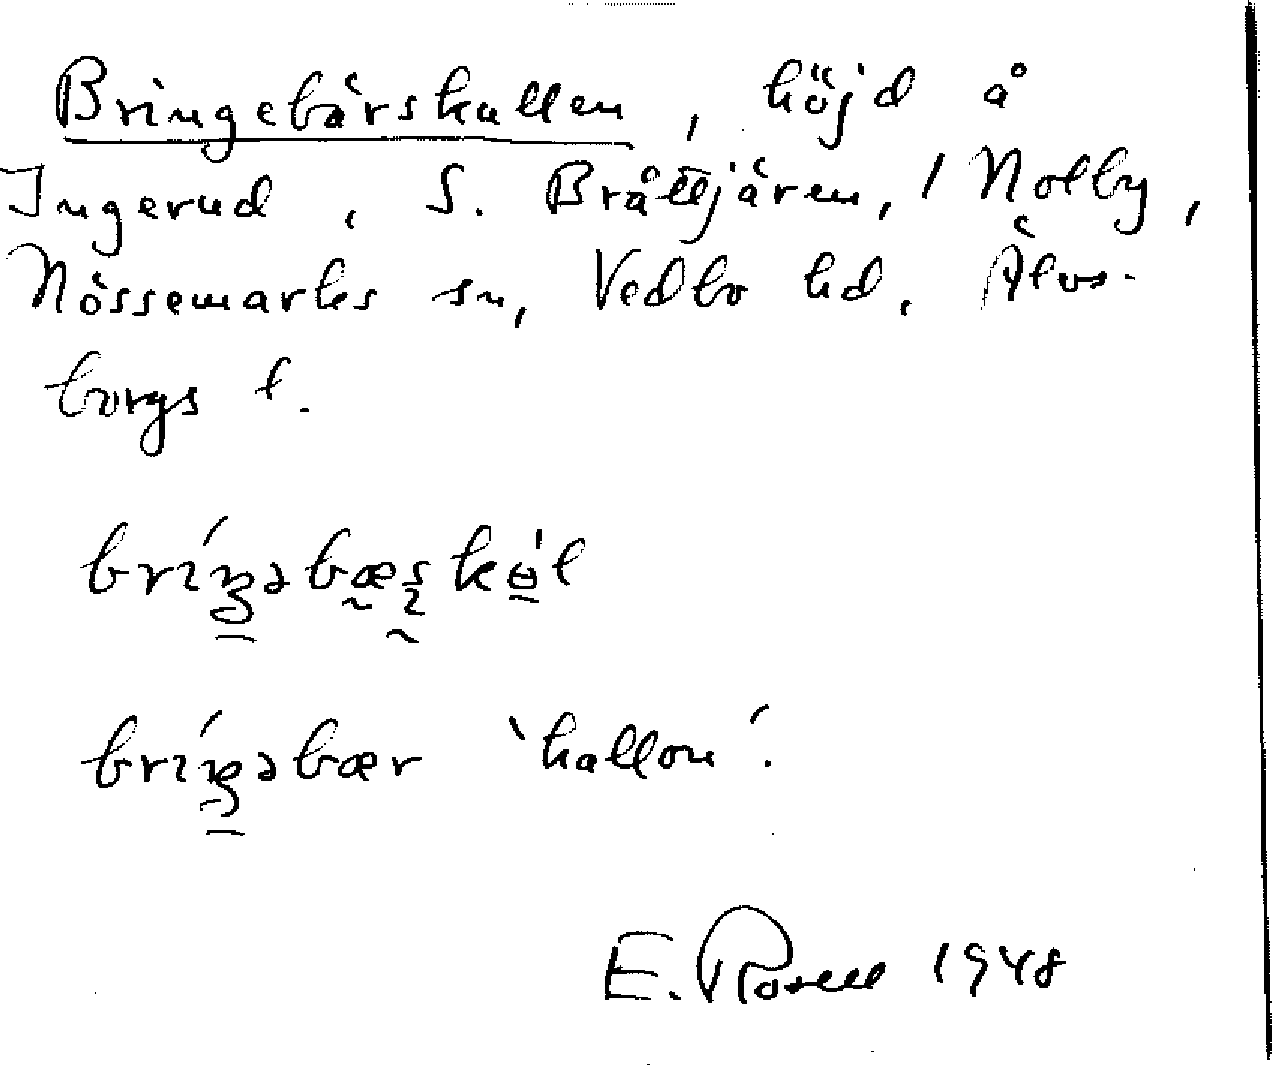 Bringebärskullen, höjd å
Ingerud, S. Bråtetjären, / Nolby,
Nössemarks sn, Vedbo hd, Älvs-
borgs l.
bríŋəbæʂkɵ́l
bríŋəbær 'hallon'.
E. Rosell 1948